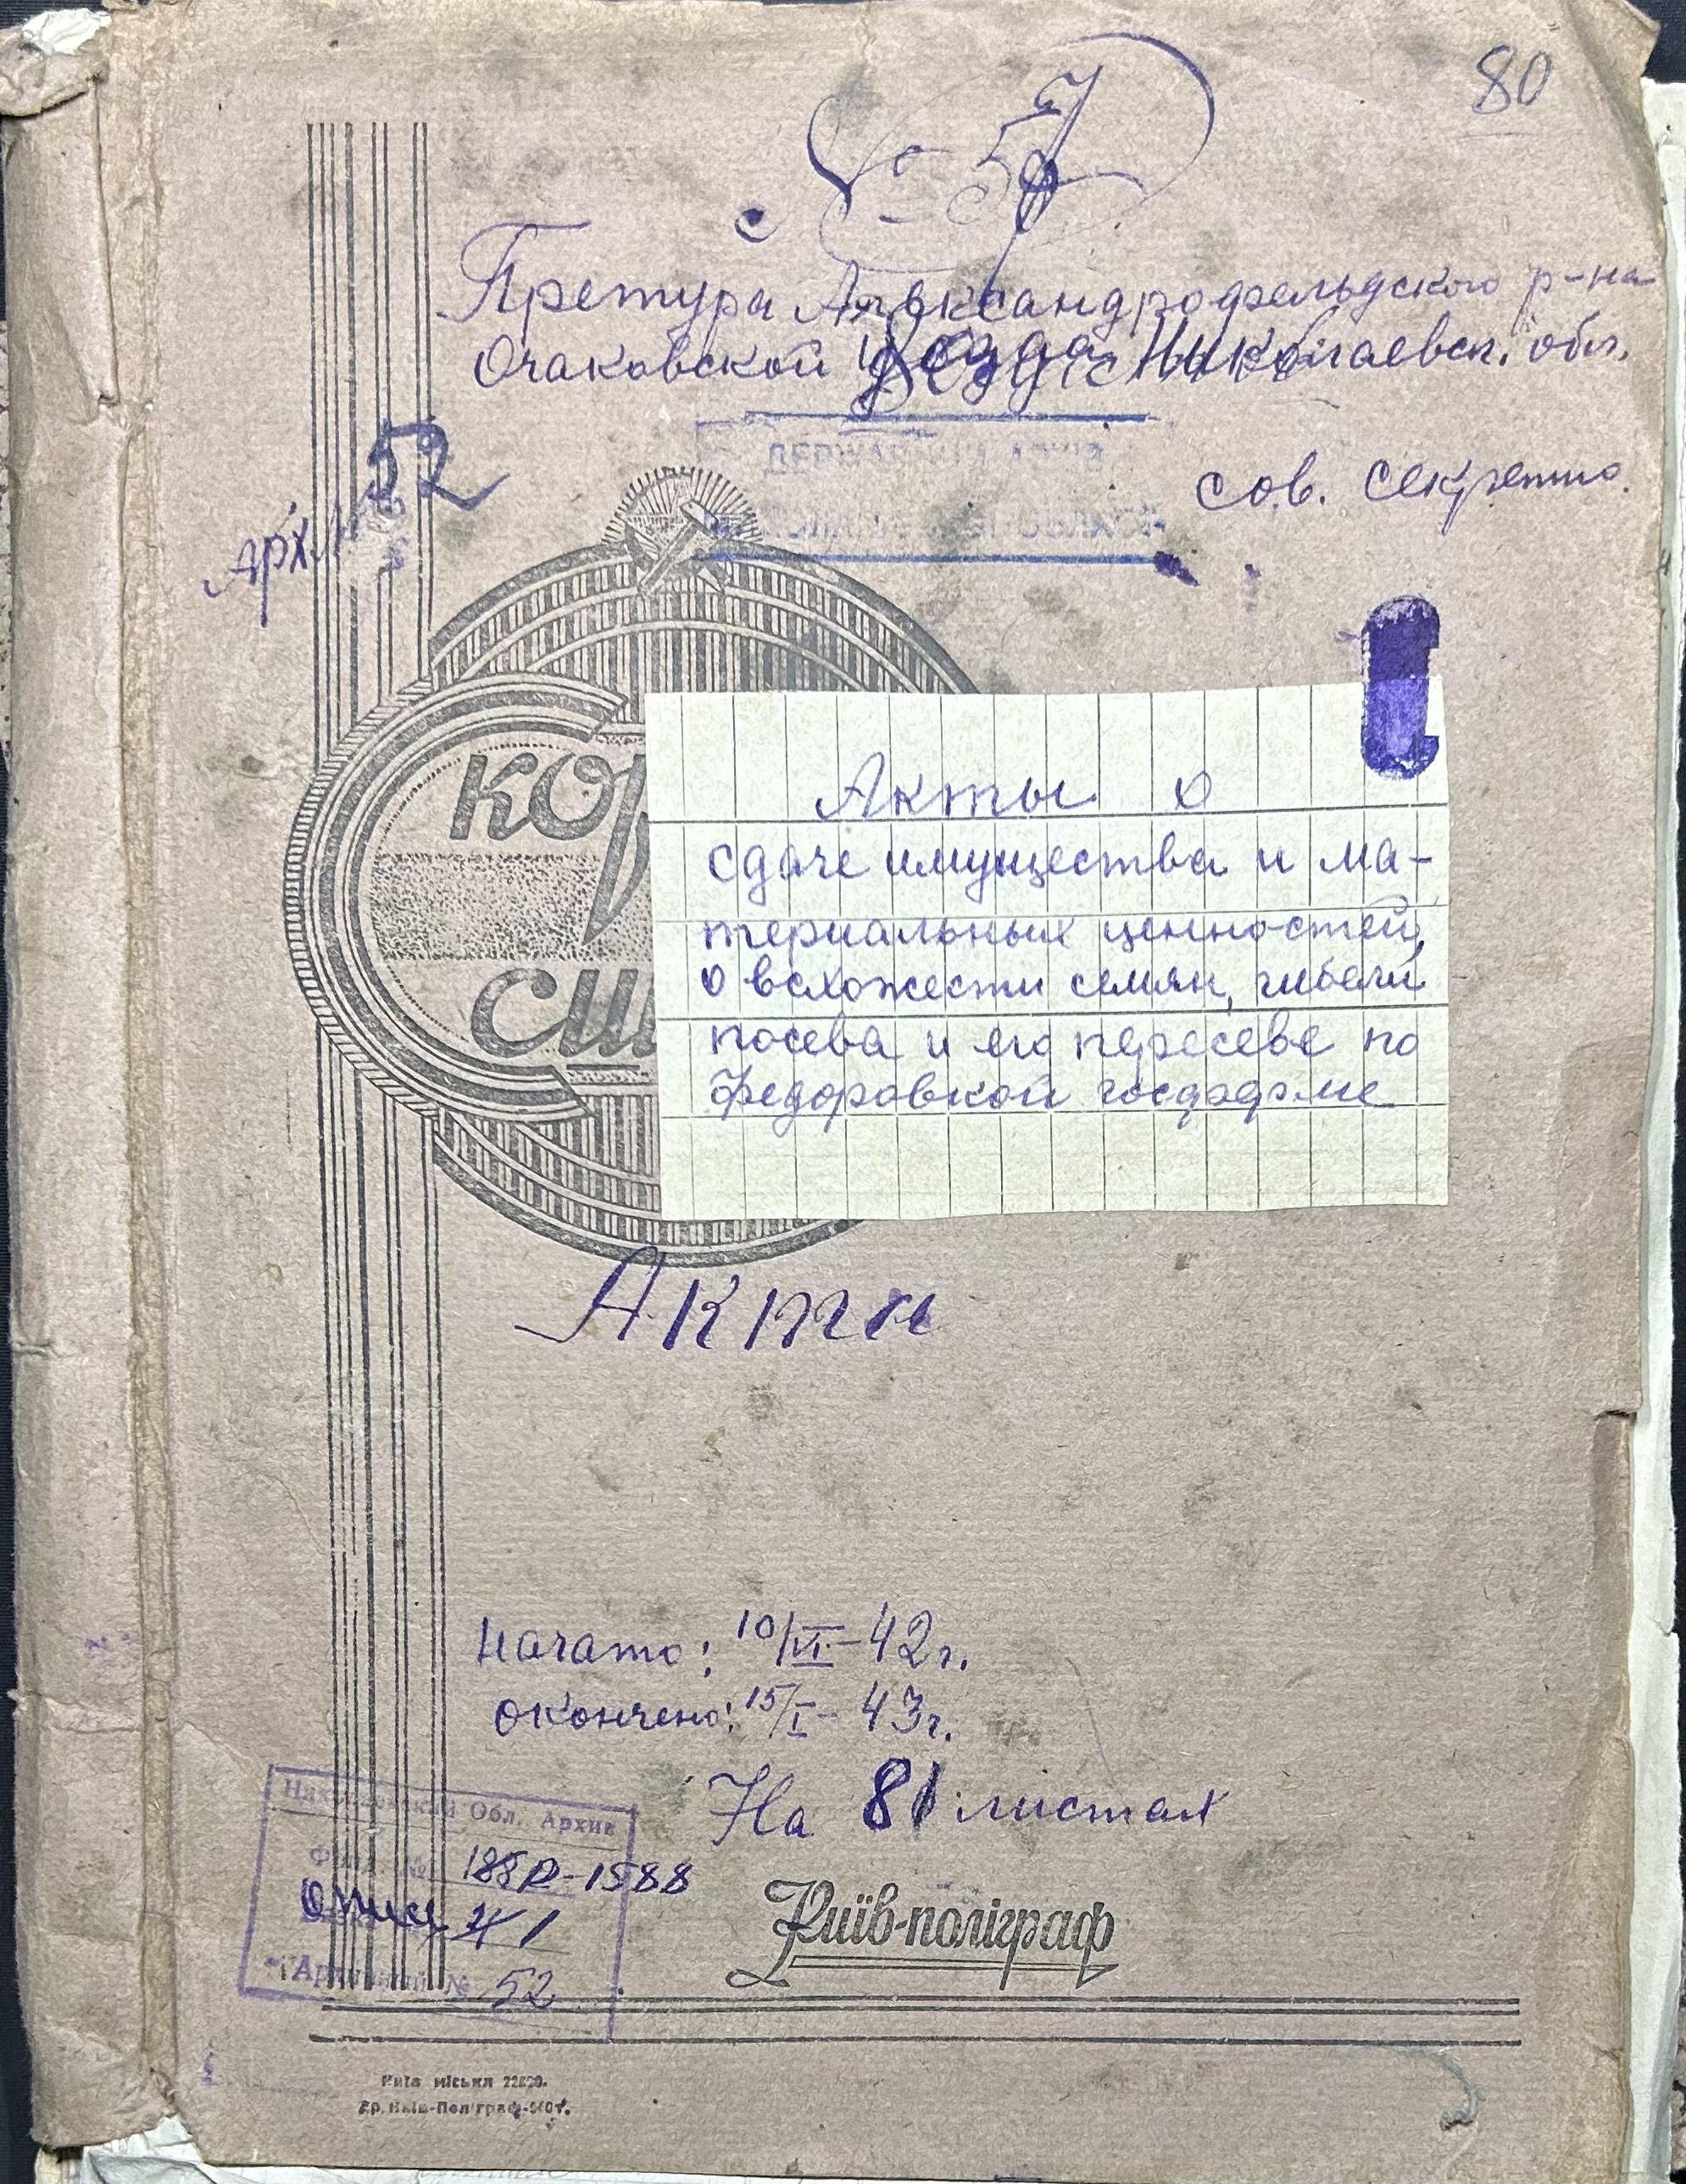 80
№ 57
Претура Александрофельдского р-на
Очаковской уезда Николаевск. обл.
ДЕРЖАВНИЙ АРХІВ
сов. секретно.
Арх № 52
Акты о
сдаче имущества и ма-
териальных ценностей,
о всхожести семян, гибели
посева и его пересеве по
Федоровкой госферме
КОР
СШ
Акти
Начато: 10/VI-42г.
окончено: 15/I-43г.
На 81 листах
Николаевский Обл. Архив
Фонд № Р-1588
опись 1
Архивный № 52
Київ-поліграф
Київ міськліт 22620.
Др. Київ-Поліграф